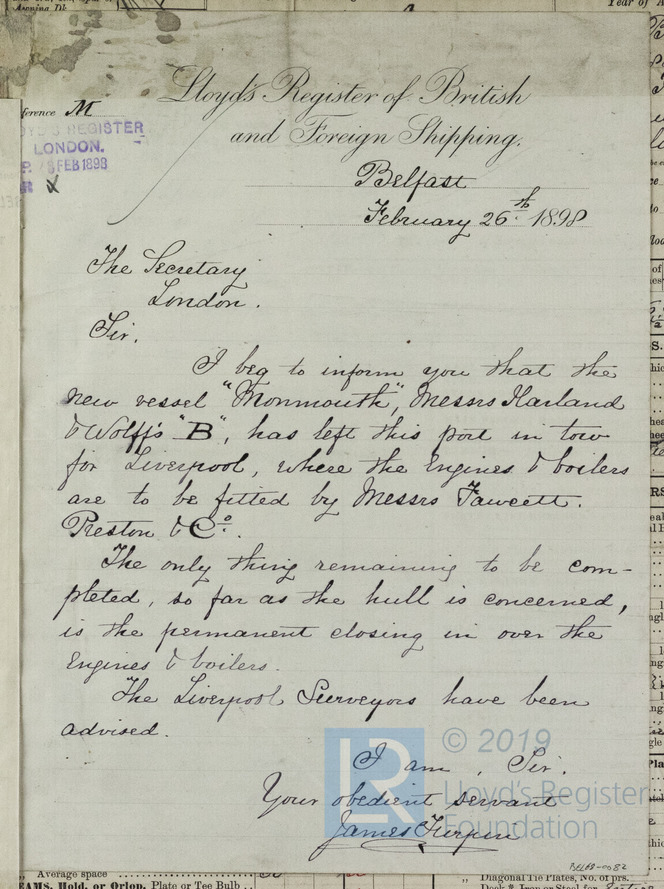 Year of
Lloyd's Register of British
and Foreign Shipping.
M
REGISTER
LONDON.
FEB 1898
Belfast
February 26th 1898
The Secretary
London.
Sir.
I beg to inform you that the
new vessel "Monmouth", Messrs Harland
& Wolff's "B", has left this port in tow
for Liverpool, where the Engines & boilers
are to be fitted by Messrs Fawcett.
Preston & Co.
The only thing remaining to be com-
pleted, so far as the hull is concerned,
is the permanent closing in over the
Engines & boilers.
The Liverpool Surveyors have been
advised.
I am, Sir.
Your obedient servant
James Turpin
© 2019
LR
Lloyd's Register
Foundation
BEL68-0082
Average space
EAMS, Hold, or Orlop, Plate or Tee Bulb
Diagonal Tie Plates, No. of prs.